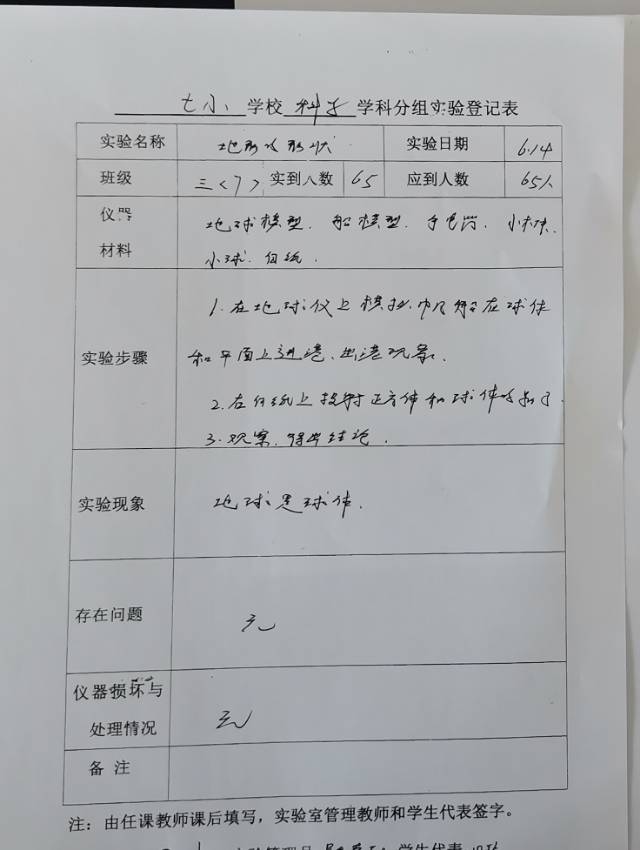 七小 学校 科学 学科分组实验登记表
实验名称 地球的形状 实验日期 6.14
班级 三<7> 实到人数 65 应到人数 65人
仪器 地球模型. 船模型. 手电筒. 小木块.
材料 小球. 白纸.
1. 在地球仪上模拟帆船在球体
实验步骤 和平面上进港、出港现象.
2. 在白纸上投射正方体和球体的影子.
3. 观察. 得出结论.
实验现象 地球是球体.
存在问题 无
仪器损坏与
处理情况 无
备 注
注：由任课教师课后填写，实验室管理教师和学生代表签字。
学生代表